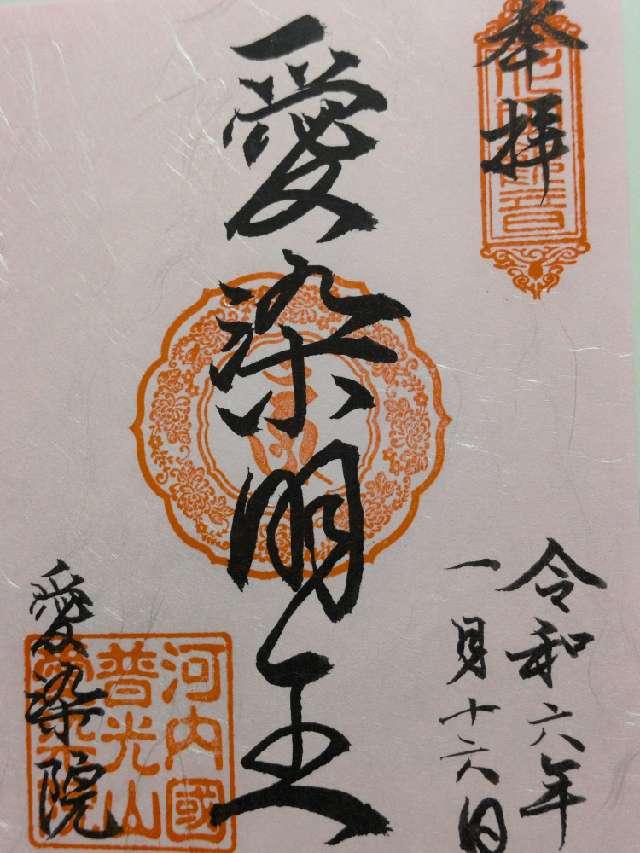 奉拝
令和六年
一月十六日
愛染明王
愛染院
河内國
普光山